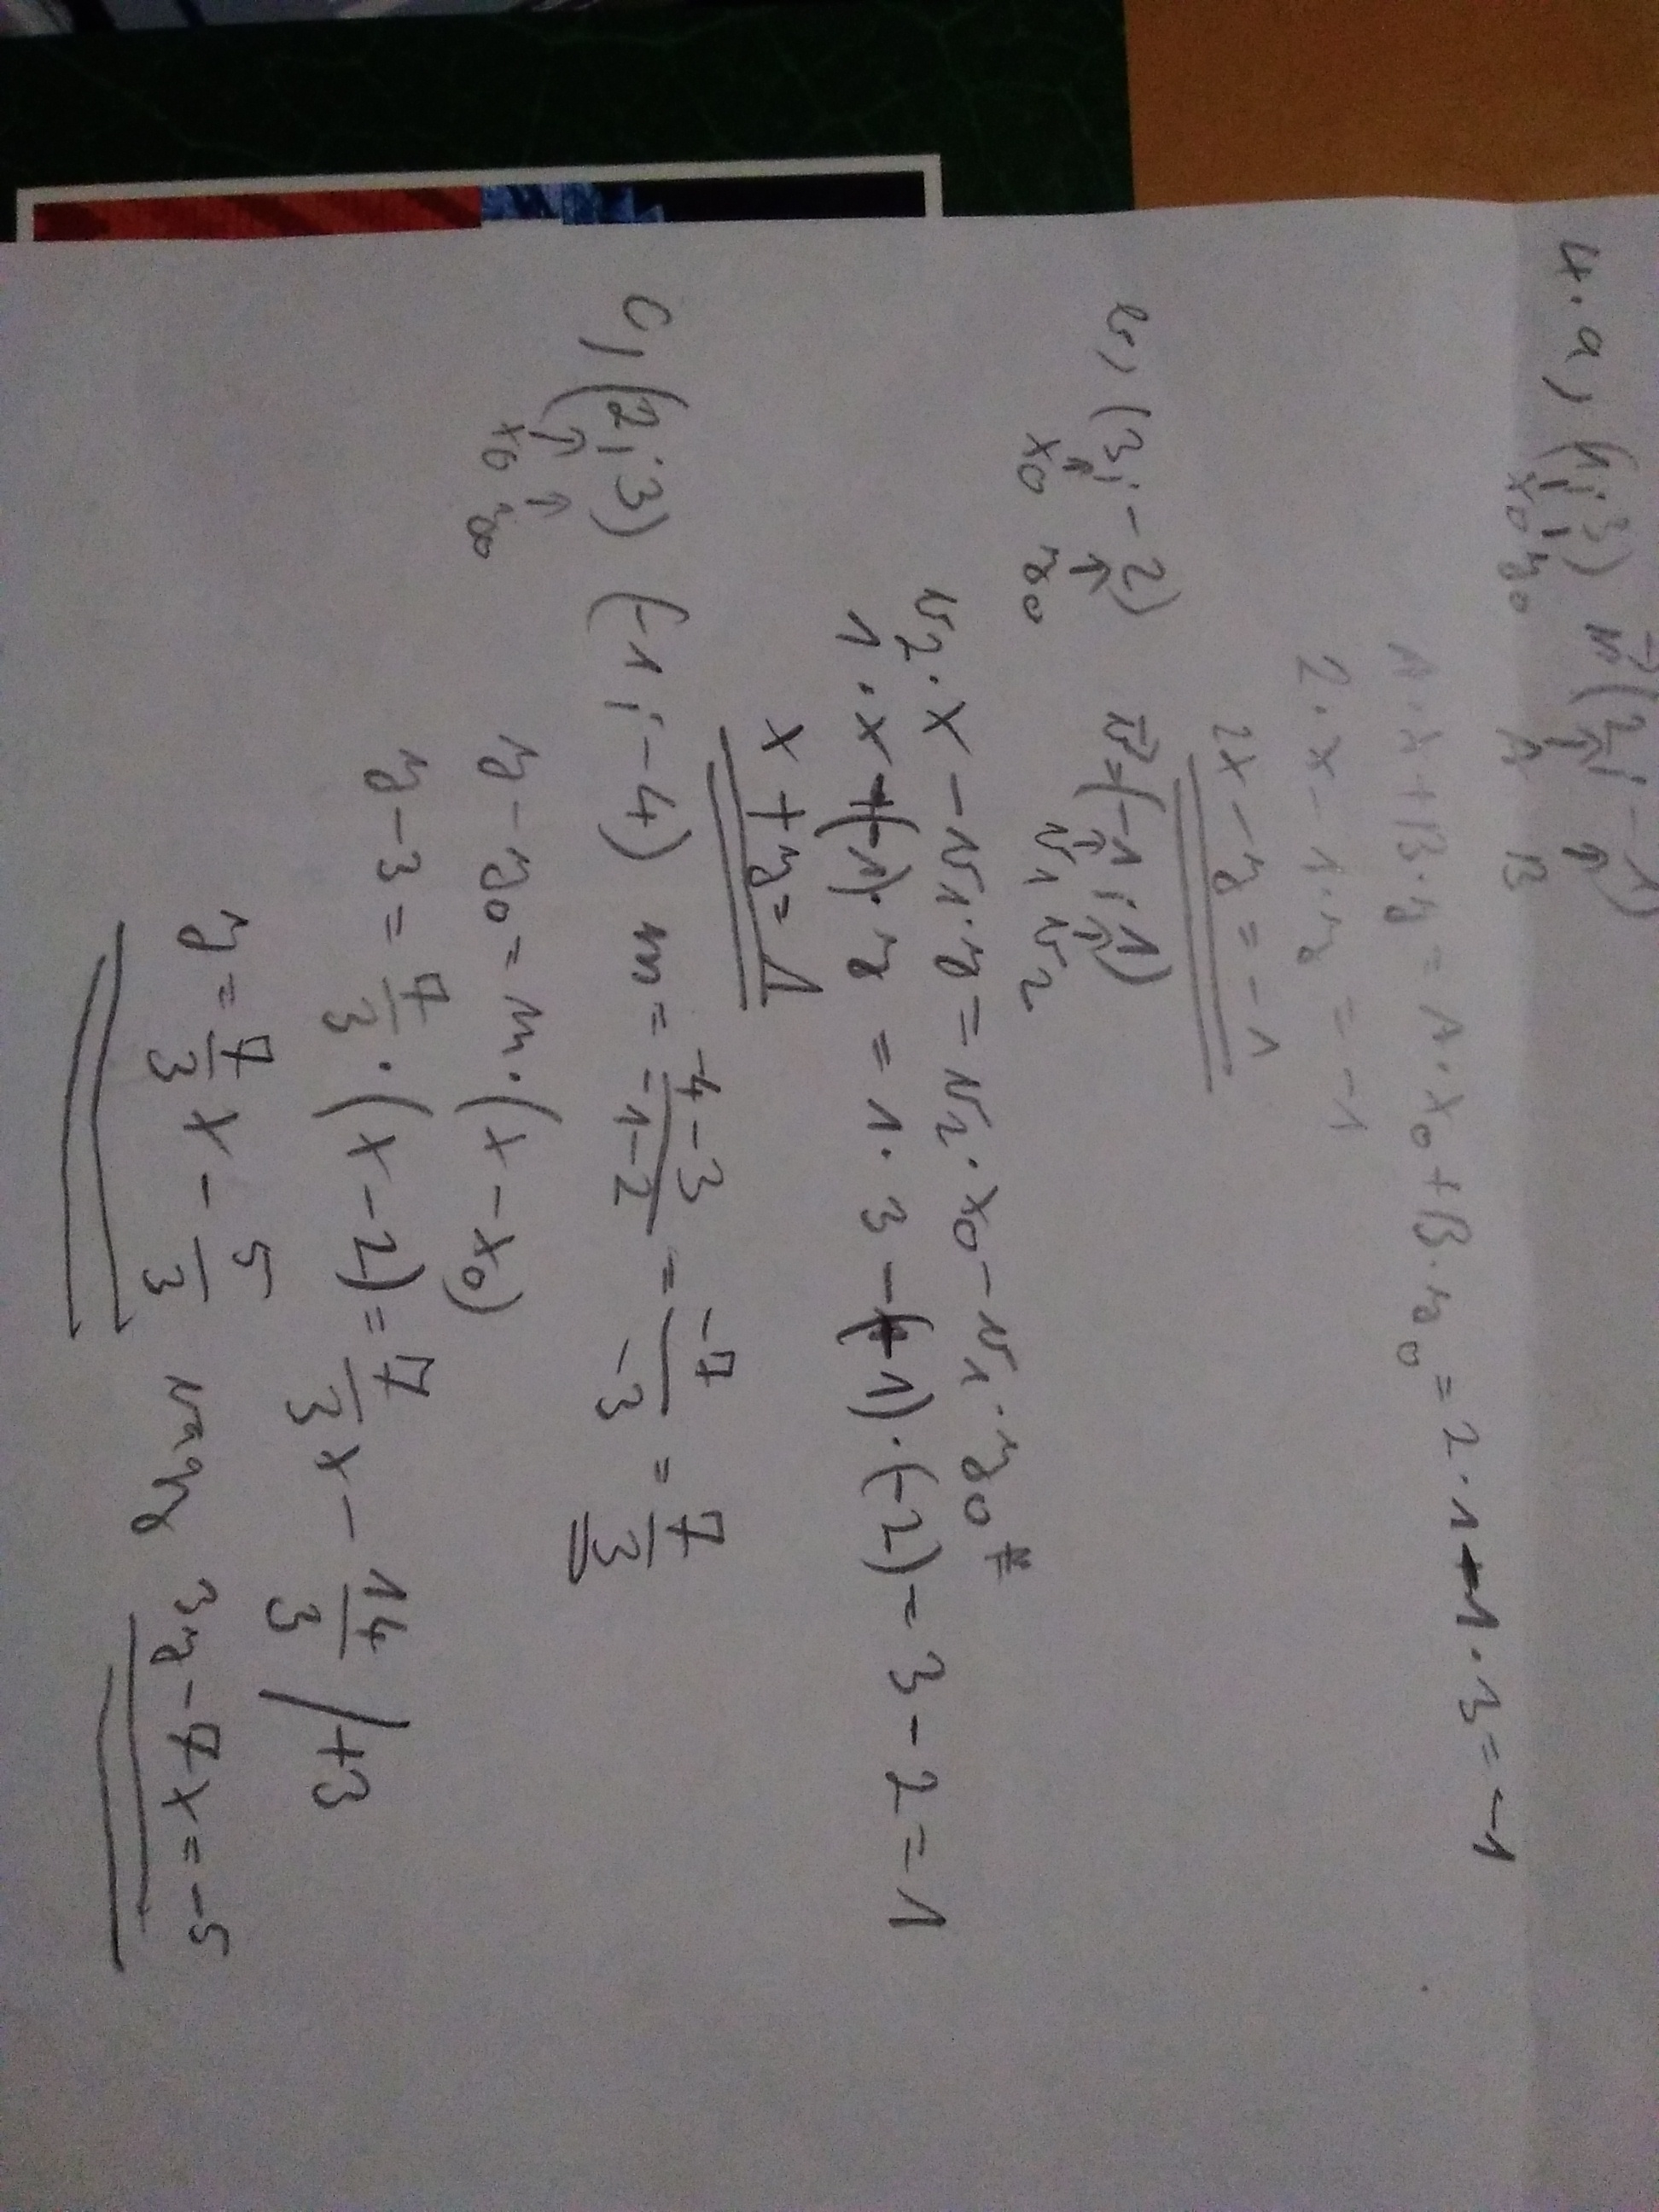 4. a, (1; 3) n⃗(2; -1)
x₀ y₀ A B
A·x + B·y = A·x₀ + B·y₀ = 2·1 + -1·3 = -1
2·x - 1·y = -1
2x - y = -1
b, (3; -2) v⃗=(-1; 1)
x₀ y₀ v₁ v₂
v₂·x - v₁·y = v₂·x₀ - v₁·y₀
1·x -(-1)·y = 1·3 -(-1)·(-2) = 3 - 2 = 1
x + y = 1
c, (2; 3) (-1; -4) m = \frac{-4-3}{-1-2} = \frac{-7}{-3} = \frac{7}{3}
x₀ y₀
y - y₀ = m·(x - x₀)
y - 3 = \frac{7}{3}·(x - 2) = \frac{7}{3}x - \frac{14}{3} /+3
y = \frac{7}{3}x - \frac{5}{3} vagy 3y - 7x = -5